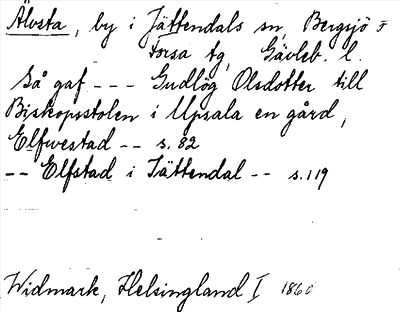 Älvsta, by i Jättendals sn, Bergsjö o
Forsa tg, Gävleb. l.
Så gaf --- Gudlög Olsdotter till
Biskopsstolen i Upsala en gård,
Elfwestad -- s. 82
-- Elfstad i Jättendal -- s. 119
Widmark, Helsingland I 1860